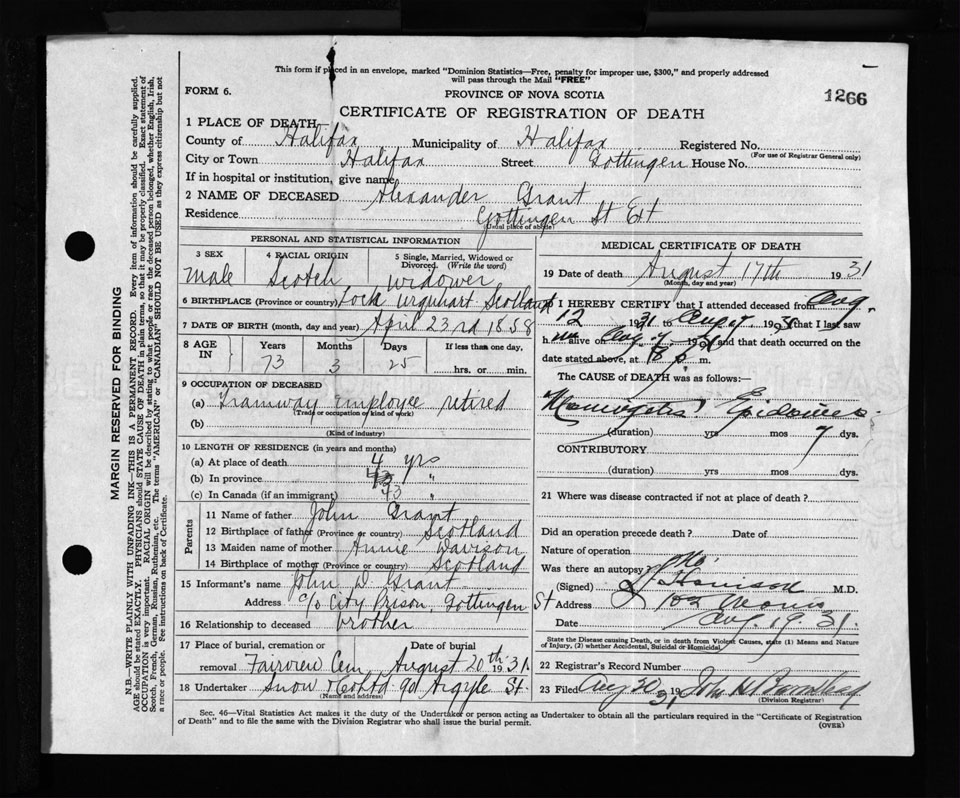 This form if placed in an envelope, marked "Dominion Statistics—Free, penalty for improper use, $300," and properly addressed
will pass through the Mail "FREE"
FORM 6.
PROVINCE OF NOVA SCOTIA
1266
CERTIFICATE OF REGISTRATION OF DEATH
1 PLACE OF DEATH—
County of Halifax Municipality of Halifax Registered No.
(For use of Registrar General only)
City or Town Halifax Street Gottingen House No.
If in hospital or institution, give name
2 NAME OF DECEASED Alexander Grant
Residence Gottingen St Ext
(Usual place of abode)
PERSONAL AND STATISTICAL INFORMATION
3 SEX 4 RACIAL ORIGIN 5 Single, Married, Widowed or Divorced. (Write the word)
male Scotch widower
6 BIRTHPLACE (Province or country) Lock Urquhart Scotland
7 DATE OF BIRTH (month, day and year) April 23rd 1858
8 AGE IN Years Months Days If less than one day,
73 3 25 hrs. or min.
9 OCCUPATION OF DECEASED
(a) Tramway Employee retired
(Trade or occupation or kind of work)
(b)
(Kind of industry)
10 LENGTH OF RESIDENCE (in years and months)
(a) At place of death 4 yrs
(b) In province 43 "
(c) In Canada (if an immigrant) 43 "
Parents
11 Name of father John Grant
12 Birthplace of father (Province or country) Scotland
13 Maiden name of mother Annie Davison
14 Birthplace of mother (Province or country) Scotland
15 Informant's name John D. Grant
Address c/o City Prison, Gottingen St
16 Relationship to deceased brother
17 Place of burial, cremation or Date of burial
removal Fairview Cem August 20th 1931.
18 Undertaker Snow & Co Ltd 90 Argyle St.
(Name and address)
MEDICAL CERTIFICATE OF DEATH
19 Date of death August 17th 1931
(Month, day and year)
20 I HEREBY CERTIFY that I attended deceased from Aug.
12 1931 to Aug 17, 1931 that I last saw
him alive on Aug 1931 and that death occurred on the
date stated above, at m.
The CAUSE of DEATH was as follows:—
(duration) yrs mos 7 dys.
CONTRIBUTORY
(duration) yrs mos dys.
21 Where was disease contracted if not at place of death?
Did an operation precede death? Date of
Nature of operation
Was there an autopsy? No.
(Signed) M.D.
Address 102 Morris
Date Aug. 19. 31.
State the Disease causing Death, or in death from Violent Causes, state (1) Means and Nature
of Injury, (2) whether Accidental, Suicidal or Homicidal.
22 Registrar's Record Number
23 Filed Aug 20 1931 John
(Division Registrar)
Sec. 46—Vital Statistics Act makes it the duty of the Undertaker or person acting as Undertaker to obtain all the particulars required in the "Certificate of Registration
of Death" and to file the same with the Division Registrar who shall issue the burial permit.
(OVER)
MARGIN RESERVED FOR BINDING
N.B.—WRITE PLAINLY WITH UNFADING INK—THIS IS A PERMANENT RECORD. Every item of information should be carefully supplied.
AGE should be stated EXACTLY. PHYSICIANS should STATE CAUSE OF DEATH in plain terms, so that it may be properly classified. Exact statement of
OCCUPATION is very important. RACIAL ORIGIN will be described by stating to what people or race the deceased person belonged, whether English, Irish,
Scotch, French, German, Russian, Ruthenian, etc. The terms "AMERICAN" or "CANADIAN" SHOULD NOT BE USED as they express citizenship but not
a race or people. See instructions on back of Certificate.